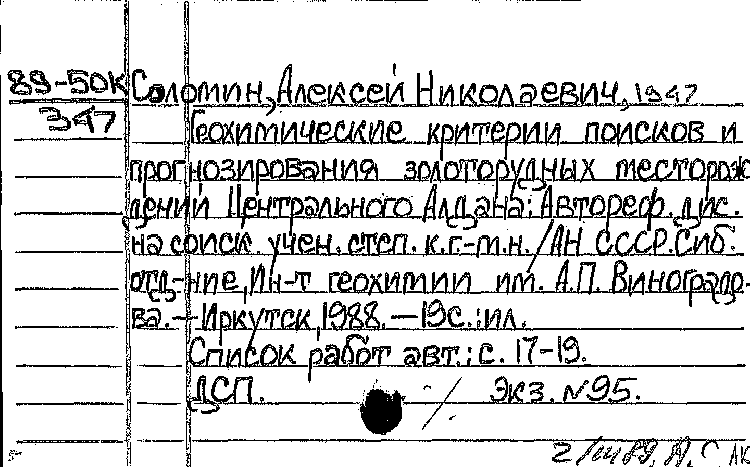 89-50К Соломин, Алексей Николаевич, 1947
347
Геохимические критерии поисков и
прогнозирования золоторудных меcторож
дений Центрального Алдана: Автореф. дис.
на соиск учен. стeп. к.г.-м.н. / АН СССР. Сиб.
отд-ние, Ин-т геохимии им. А.П. Виноградо-
ва. — Иркутск, 1988. — 19с.: ил.
Список работ авт.: с. 17-19.
ДСП. Экз. №95.